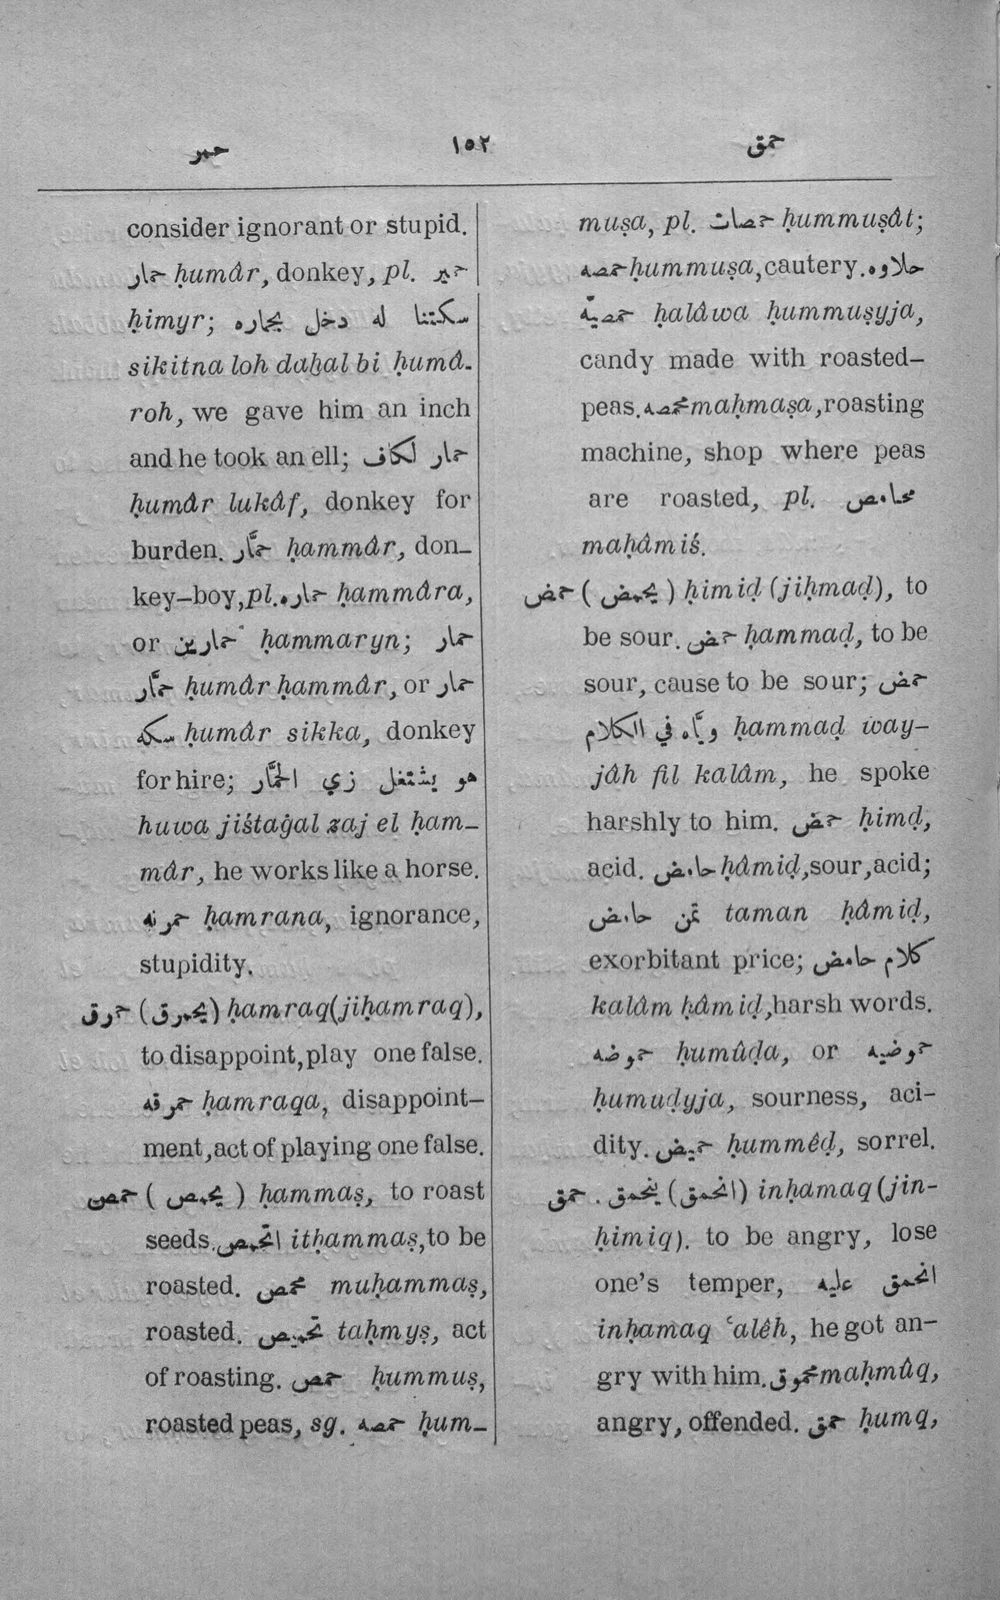 حمر ١٥٢ حمق
consider ignorant or stupid.
حمار ḥumâr, donkey, pl. حمير
ḥimyr; سكتنا له دخل بحماره
sikitna loh daḫal bi ḥumâ-
roh, we gave him an inch
and he took an ell; حمار لكاف
ḥumâr lukâf, donkey for
burden. حمَّار ḥammâr, don-
key-boy, pl. حماره ḥammâra,
or حمارين ḥammaryn; حمار
حمَّار ḥumâr ḥammâr, or حمار
سكه ḥumâr sikka, donkey
for hire; هو يشتغل زي الحمَّار
huwa jiśtaġal zaj el ḥam-
mâr, he works like a horse.
حمرنه ḥamrana, ignorance,
stupidity.
حمرق (يحمرق) ḥamraq (jiḥamraq),
to disappoint, play one false.
حمرقه ḥamraqa, disappoint-
ment, act of playing one false.
حمص (يحمص) ḥammaṣ, to roast
seeds. اتحمص itḥammaṣ, to be
roasted. محمص muḥammaṣ,
roasted. تحميص taḥmyṣ, act
of roasting. حمص ḥummuṣ,
roasted peas, sg. حمصه ḥum-
muṣa, pl. حمصات ḥummuṣât;
حمصه ḥummuṣa, cautery. حلاوه
حمصيّه ḥalâwa ḥummuṣyja,
candy made with roasted-
peas. محمصه maḥmaṣa, roasting
machine, shop where peas
are roasted, pl. محامص
maḥâmiś.
حمض (يحمض) ḥimiḍ (jiḥmaḍ), to
be sour. حمض ḥammaḍ, to be
sour, cause to be sour; حمض
ويَّاه في الكلام ḥammaḍ way-
jâh fil kalâm, he spoke
harshly to him. حمض ḥimḍ,
acid. حامض ḥâmiḍ, sour, acid;
تمن حامض taman ḥâmiḍ,
exorbitant price; كلام حامض
kalâm ḥâmiḍ, harsh words.
حموضه ḥumûḍa, or حموضيه
ḥumuḍyja, sourness, aci-
dity. حميض ḥummêḍ, sorrel.
حمق . (انحمق) ينحمق inḥamaq (jin-
ḥimiq). to be angry, lose
one's temper, انحمق عليه
inḥamaq ʿalêh, he got an-
gry with him. محموق maḥmûq,
angry, offended. حمق ḥumq,